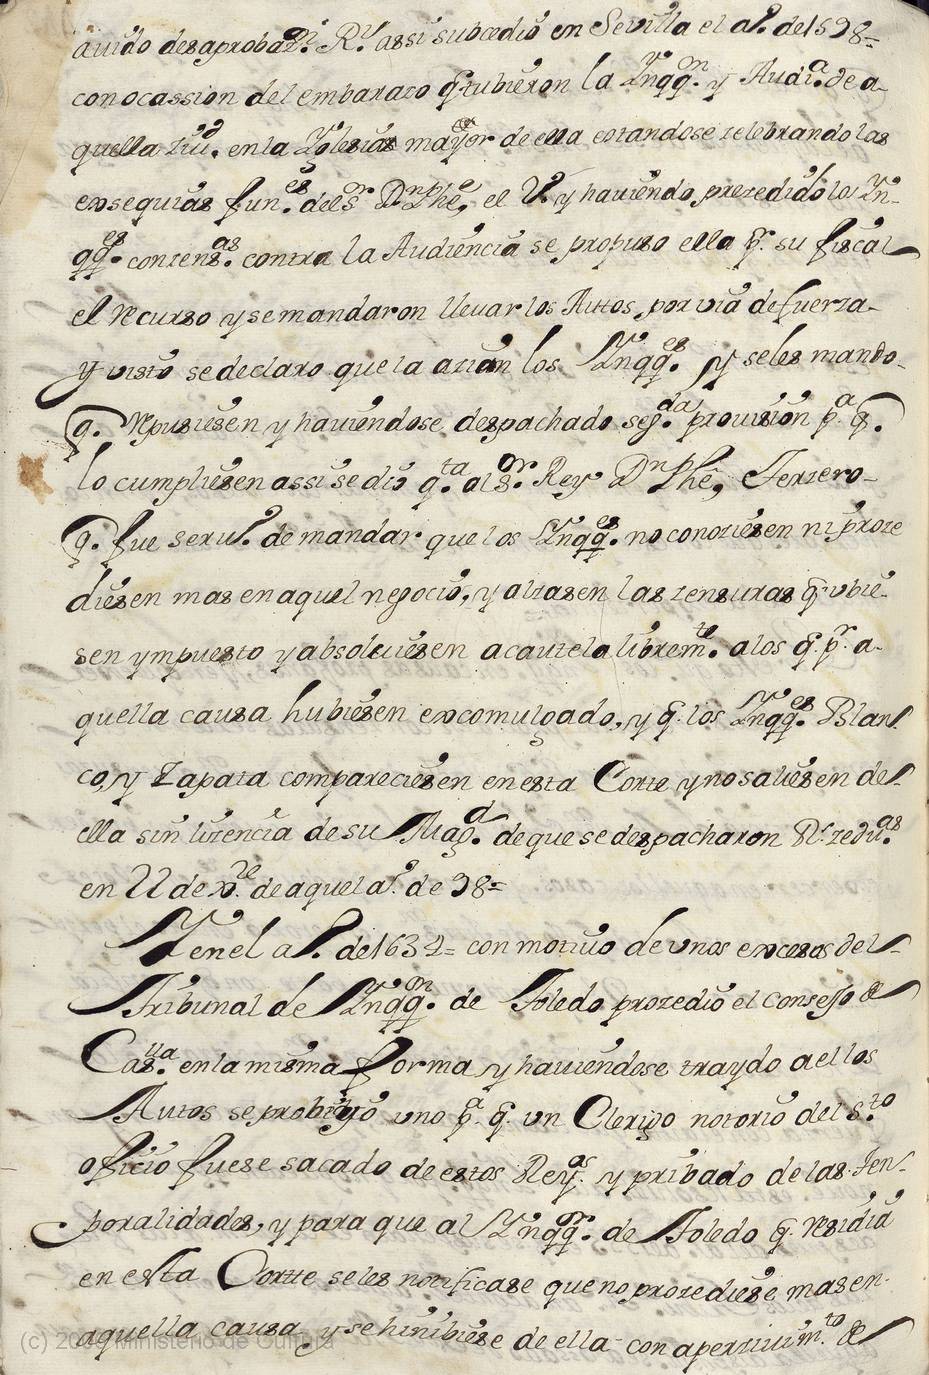 auido desaprobazn. Rl. assi subcedió en Sevilla el aº. de 1598=
con ocassion del embarazo q̃ tubieron la Ynqqon. y Auda. de a-
quella ziud. en la Yglesia mayor de ella estandose zelebrando las
exsequias funes. del sor Dn Phe, el 2º. y hauiendo prezedido los Yn-
qqes. zensas. contra la Audiencia se propuso ella pr. su fiscal
el recurso y se mandaron lleuar los Autos, por via de fuerza-
y visto se declaro que la azian los Ynqqes. y se les mando-
q. repusiesen y hauiendose despachado segda. prouision pa. q.
lo cumpliesen assi se dio qta. al sor. Rey Dn Phe, Terzero-
q. fue seruº. de mandar que los Ynqqes. no conoziesen ni proze
diesen mas en aquel negocio, y alzasen las zensuras q̃ vbie-
sen ympuesto y absoluiesen a cautela libremte. a los q̃. pr. a-
quella causa hubiesen excomulgado, y q̃. los Ynqqes. Blan
co, y Zapata compareciesen en esta Corte y no saliesen de
ella sin lizencia de su Magd. de que se despacharon Rs. zedulas
en 22 de xre. de aquel aº. de 98=
Y en el aº. de 1634= con motiuo de vnos excesos del
Tribunal de Ynqqon. de Toledo prozedió el Consejo de
Casua. en la misma forma y hauiendose traydo a el los
Autos se probeyó vno pa. q. vn Clerigo notorio del sto.
oficio fuese sacado de estos Reys. y pribado de las Ten
poralidades, y para que al Ynqqor. de Toledo q. residia
en esta Cortte se les notificase que no prozediese mas en
aquella causa y se hinibiese de ella- con aperziuimto. de
(c) Ministerio de Cultura